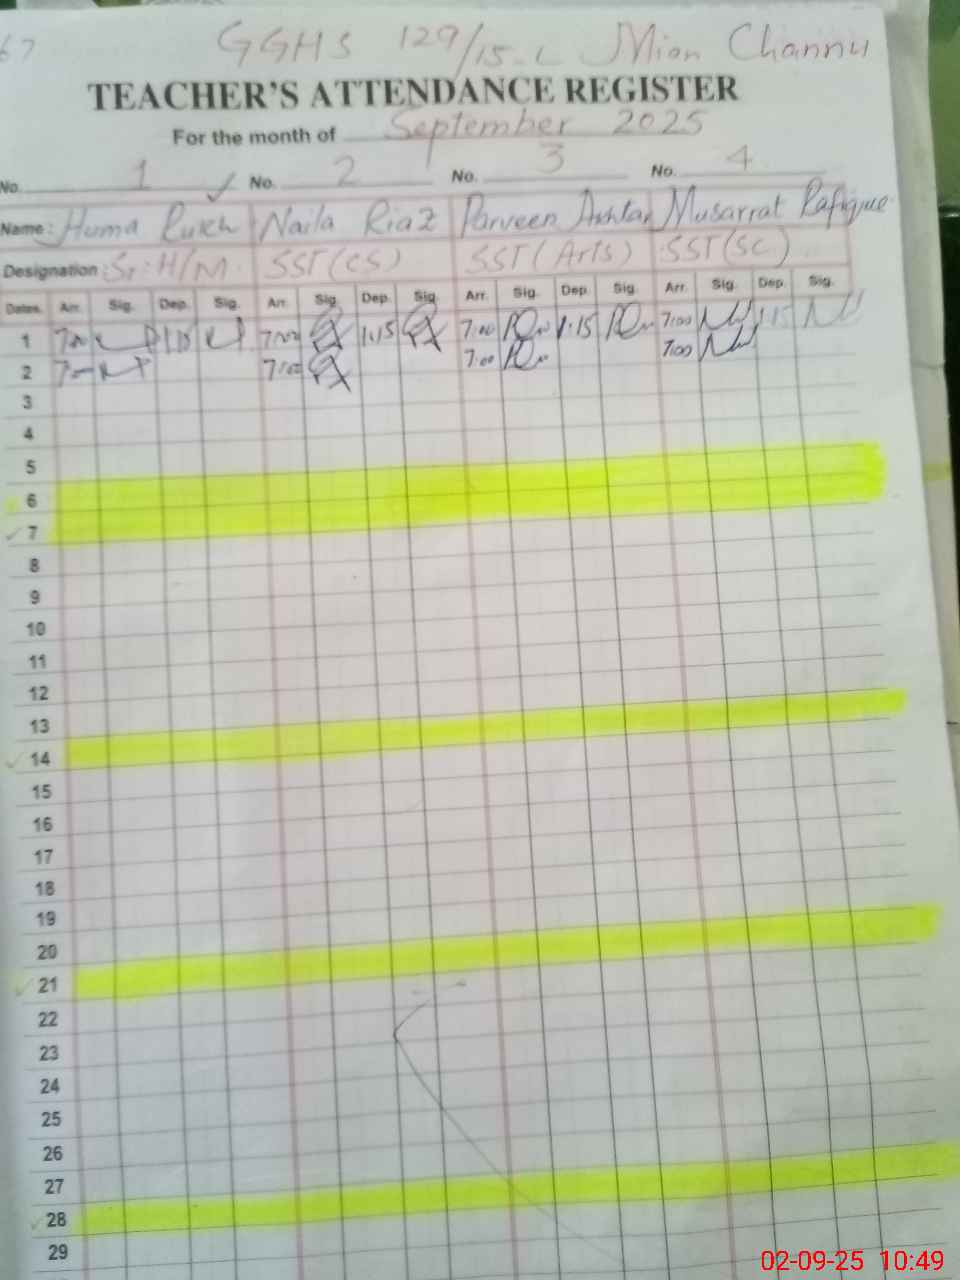 67
GGHS 129/15-L Mian Channu
TEACHER'S ATTENDANCE REGISTER
For the month of September 2025
No. 1 No. 2 No. 3 No. 4
Name: Huma Rukh Naila Riaz Parveen Akhtar Musarrat Rafique
Designation: Sr: H/M SST (CS) SST (Arts) SST (SC)
Dates. Arr. Sig. Dep. Sig. Arr. Sig. Dep. Sig. Arr. Sig. Dep. Sig. Arr. Sig. Dep. Sig.
1 7:00 1:15 7:00 1:15 7:00 1:15 7:00 1:15
2 7:00 7:00 7:00 7:00
3
4
5
6
7
8
9
10
11
12
13
14
15
16
17
18
19
20
21
22
23
24
25
26
27
28
29
02-09-25 10:49